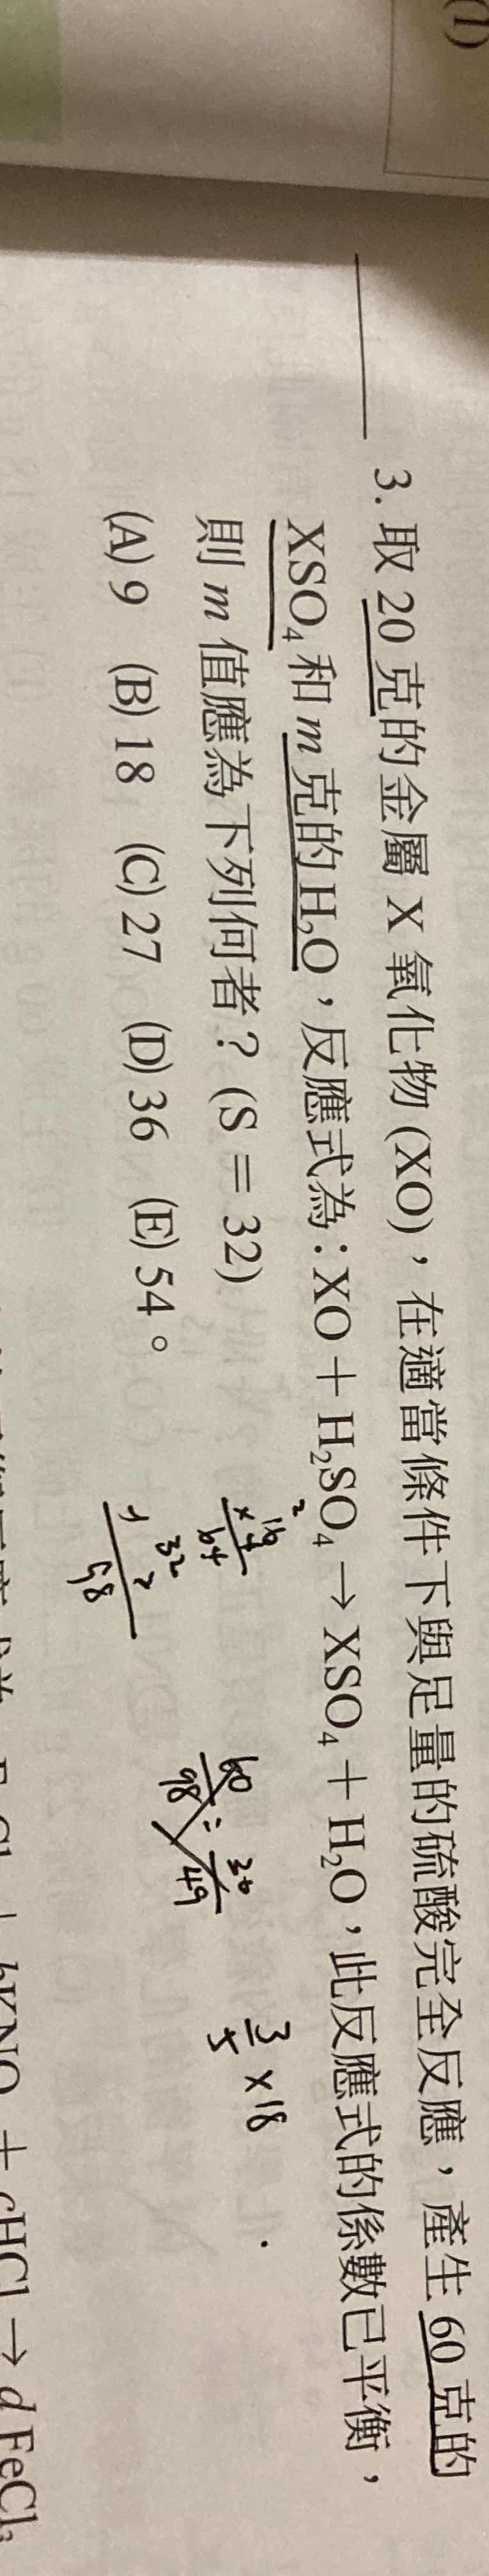 (1)
3. 取 20 克的金屬 X 氧化物 (XO)，在適當條件下與足量的硫酸完全反應，產生 60 克的
XSO₄ 和 m 克的 H₂O，反應式為：XO＋H₂SO₄ → XSO₄＋H₂O，此反應式的係數已平衡，
則 m 值應為下列何者？(S＝32)
(A) 9 (B) 18 (C) 27 (D) 36 (E) 54。
2
16
× 4
64
32
2
98
60/98 = 30/49
3/5 × 18
KNO + cHCl → d FeCl₃